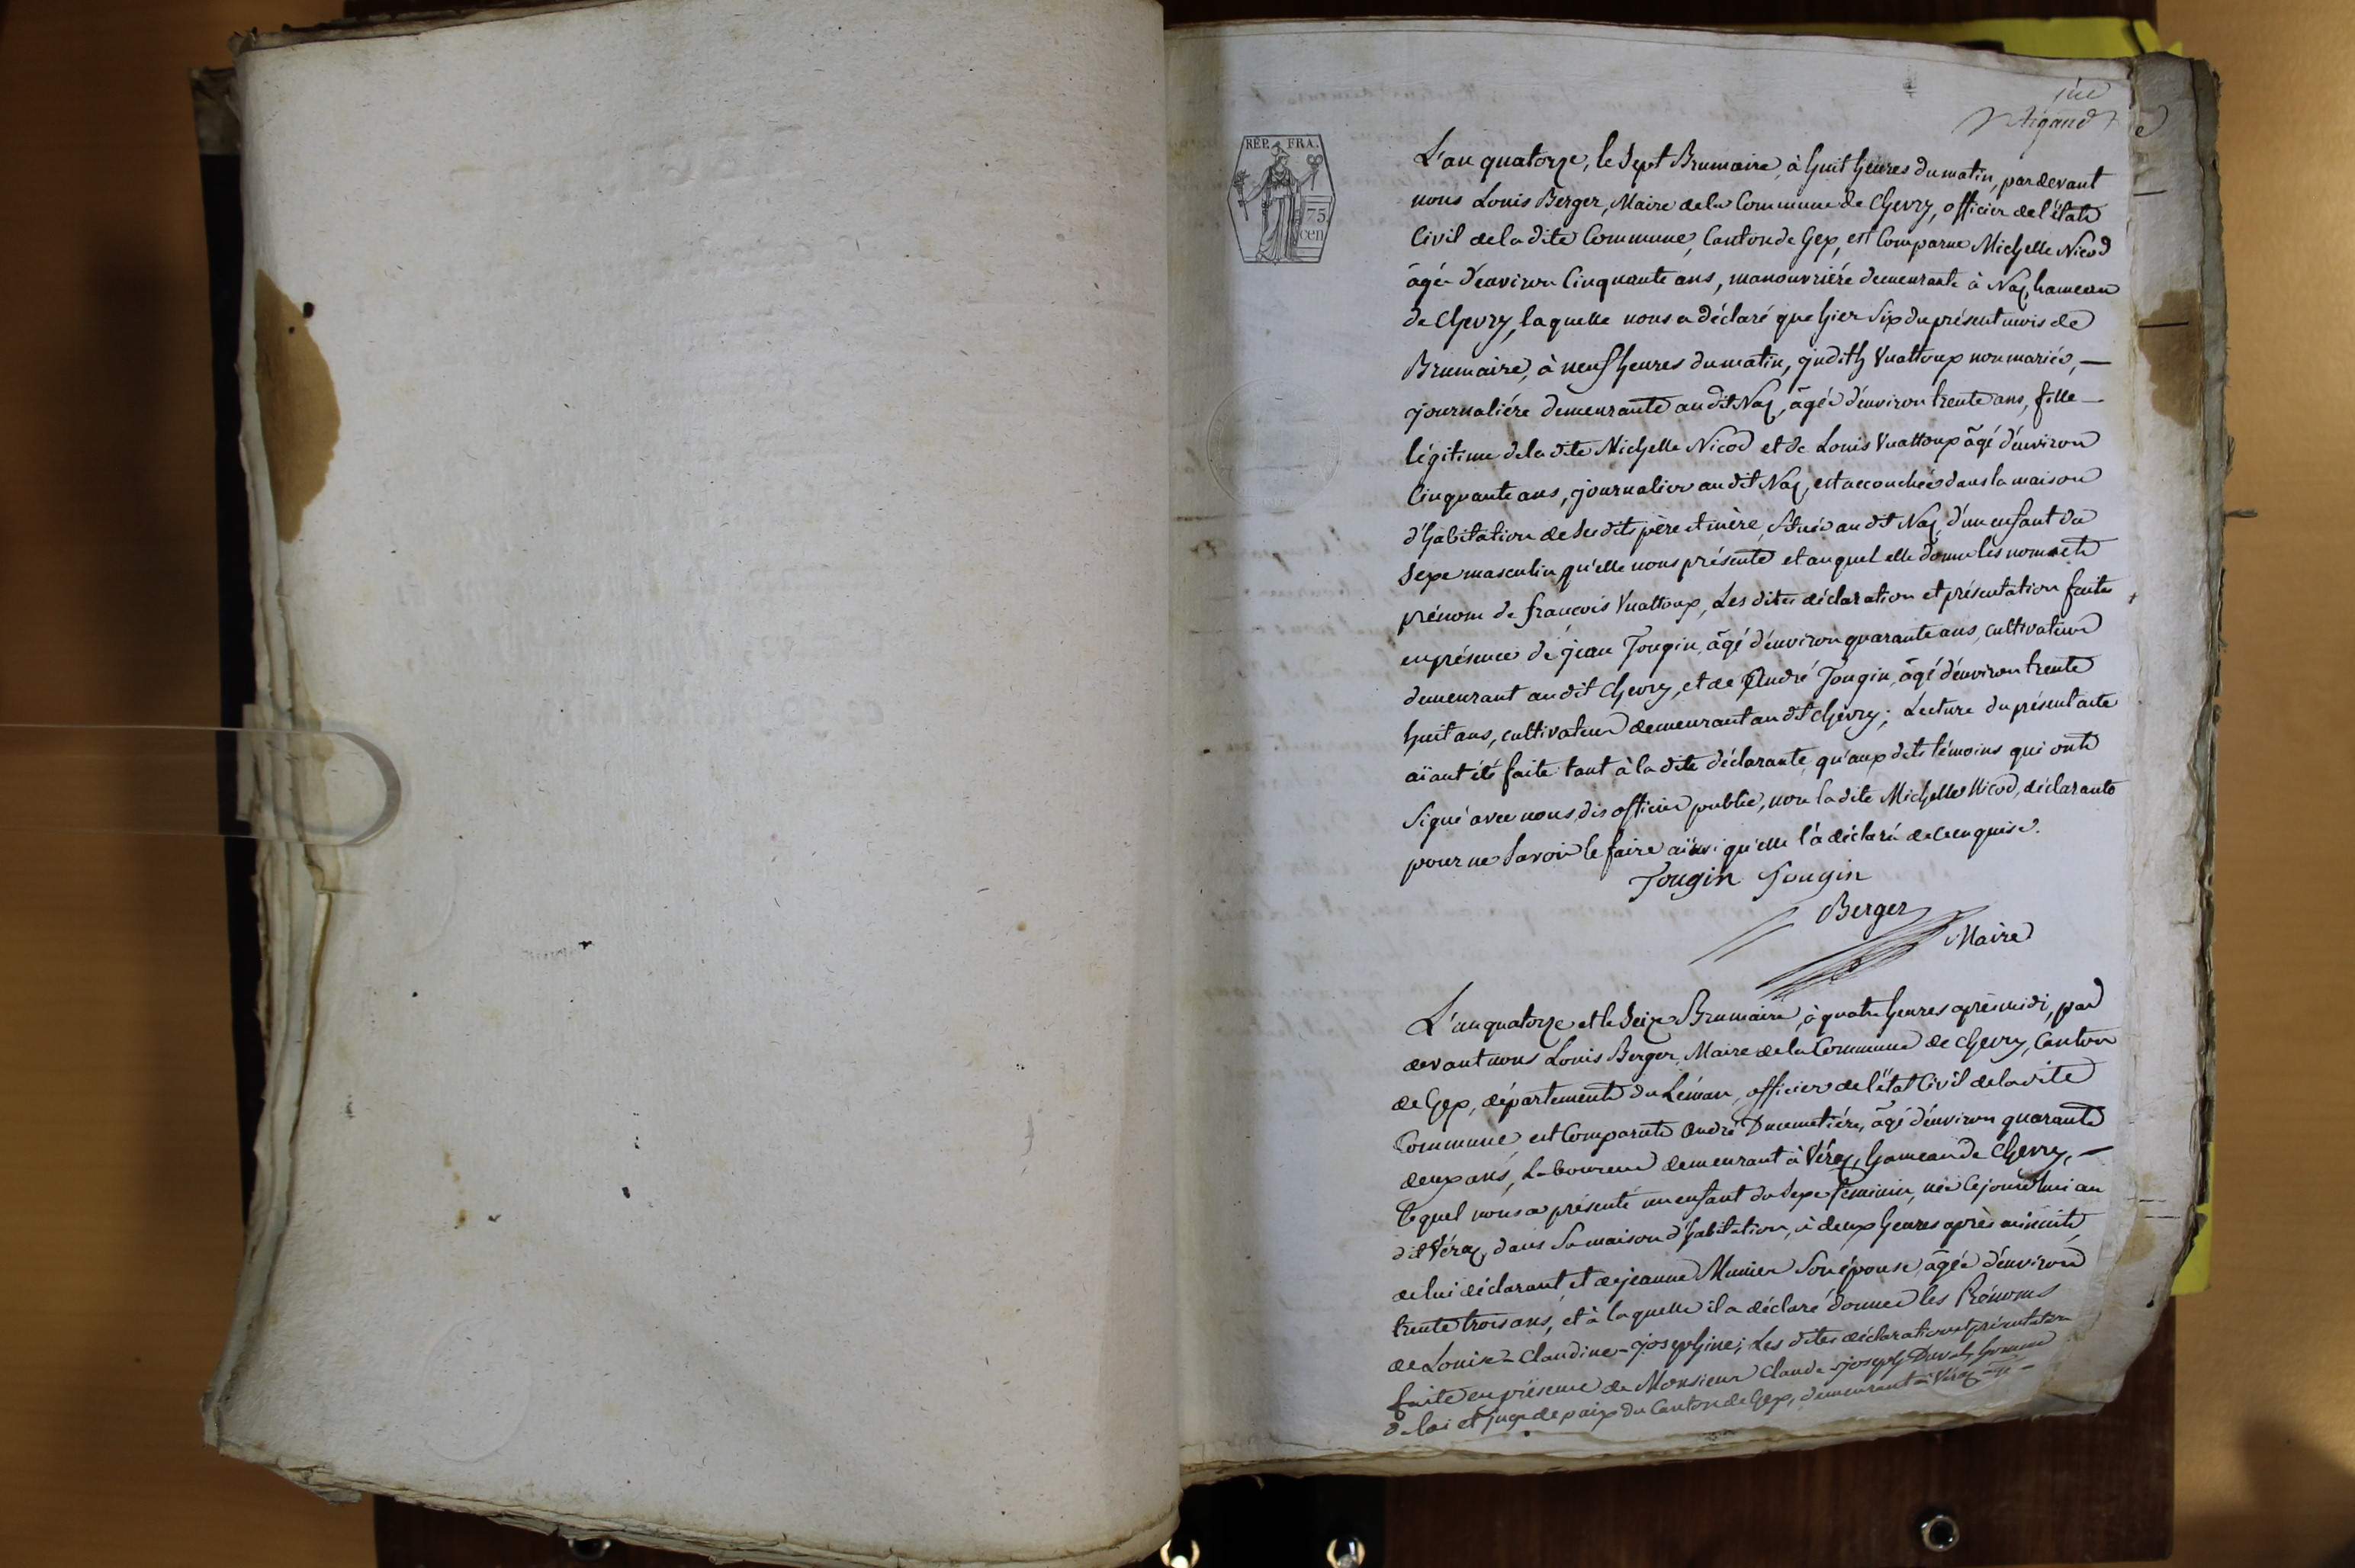 RÉP. FRA.
75
cen
L'an quatorze, le Sept Brumaire, à huit heures du matin, pardevant
nous Louis Berger, Maire de la Commune de Chevry, officier de l'état
Civil de la dite Commune, Canton de Gex, est Comparue Michelle Nicod
âgée d'environ Cinquante ans, manouvriére demeurante à Naz, hameau
de Chevry, laquelle nous a déclaré que hier Six du présent mois de
Brumaire, à neuf heures du matin, judith Vuattoux non mariée, —
journaliére demeurante au dit Naz, âgée d'environ trente ans, fille —
légitime de la dite Michelle Nicod et de Louis Vuattoux âgé d'environ
Cinquante ans, journalier au dit Naz, est accouchée dans la maison
d'habitation de Ses dits père et mère, Située au dit Naz, d'un enfant du
Sexe masculin qu'elle nous présente et auquel elle donne les nom et
prénom de francois Vuattoux, Les dites déclaration et présentation faite
en présence de jean Jougin, âgé d'environ quarante ans, cultivateur
demeurant au dit Chevry, et de André Jougin, âgé d'environ trente
huit ans, cultivateur demeurant au dit Chevry; Lecture du présent acte
aïant été faite tant à la dite déclarante, qu'aux dits témoins qui ont
Signé avec nous dis officier public, non la dite Michelle Nicod, déclarante
pour ne Savoir le faire aïnsi qu'elle l'a déclaré de ce enquise.
Jougin Jougin
Berger
Maire
L'an quatorze et le Seize Brumaire, à quatre heures après midi, par
devant nous Louis Berger, Maire de la Commune de Chevry, Canton
de Gex, département du Léman, officier de l'état Civil de la dite
Commune, est Comparut André Ducimetière, âgé d'environ quarante
deux ans, Laboureur demeurant à Véraz, hameau de Chevry, —
lequel nous a présenté un enfant du Sexe féminin, née Cejourd'hui au
dit Véraz, dans Sa maison d'habitation, à deux heures après minuit,
de lui déclarant, et de jeanne Munier Son épouse, âgée d'environ
trente trois ans, et à laquelle il a déclaré donner les Prénoms
de Louise-Claudine-josephine; Les dites déclaration et présentation
faite en présence de Monsieur Claude-joseph Duval, homme
de loi et juge de paix du Canton de Gex, demeurant à Véraz, âgé —